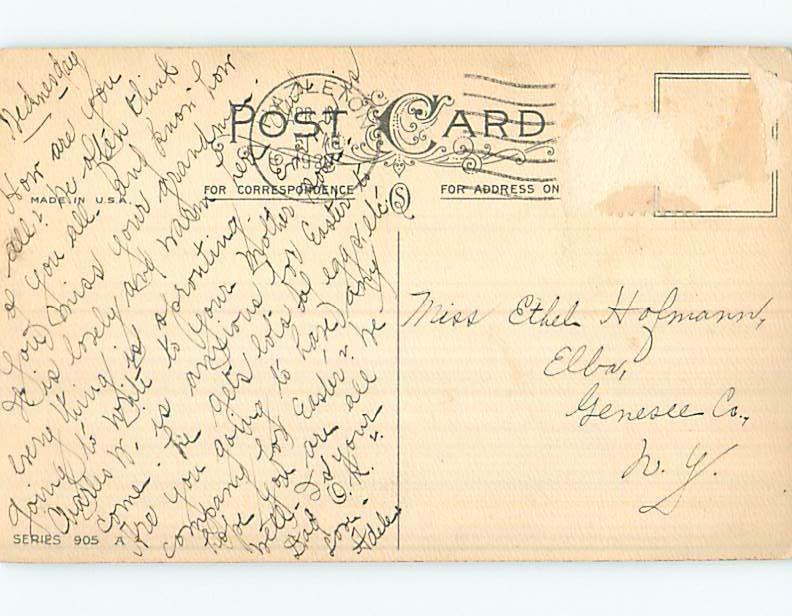 POST CARD
FOR CORRESPONDENCE
FOR ADDRESS ON
MADE IN U.S.A.
Wednesday
How are you
all? We often think
of you all. And know how
you miss your grandma.
It is lovely and warm here and
every thing is sprouting.
going to write to your Mother soon.
Charles W. is anxious for Easter to
come. He gets lots of eggs etc.
Are you going to have any
company for Easter? We
hope you are all
well. Is your
Dad O.K.?
Love
Adele
Miss Ethel Hofmann,
Elba,
Genesee Co.,
N. Y.
SERIES 905 A